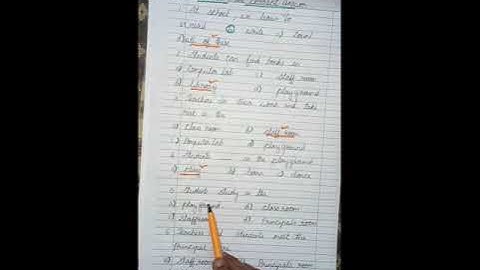 Correct Answer
1. At school, we learn to
a) read b) write c) count
d) all of these
2. Students can find books in
a) Computer lab c) Staff room
b) Library d) playground
3. Teachers in free time and take
rest in the
a) Class room b) staff room
c) Computer lab d) playground
4. Students ______ in the playground
a) play b) learn c) dance
5. Students study in the
a) playground b) class room
c) Staffroom d) Principal's room
6. Teachers and students meet the
Principal
a) Staff room b) Principal's room